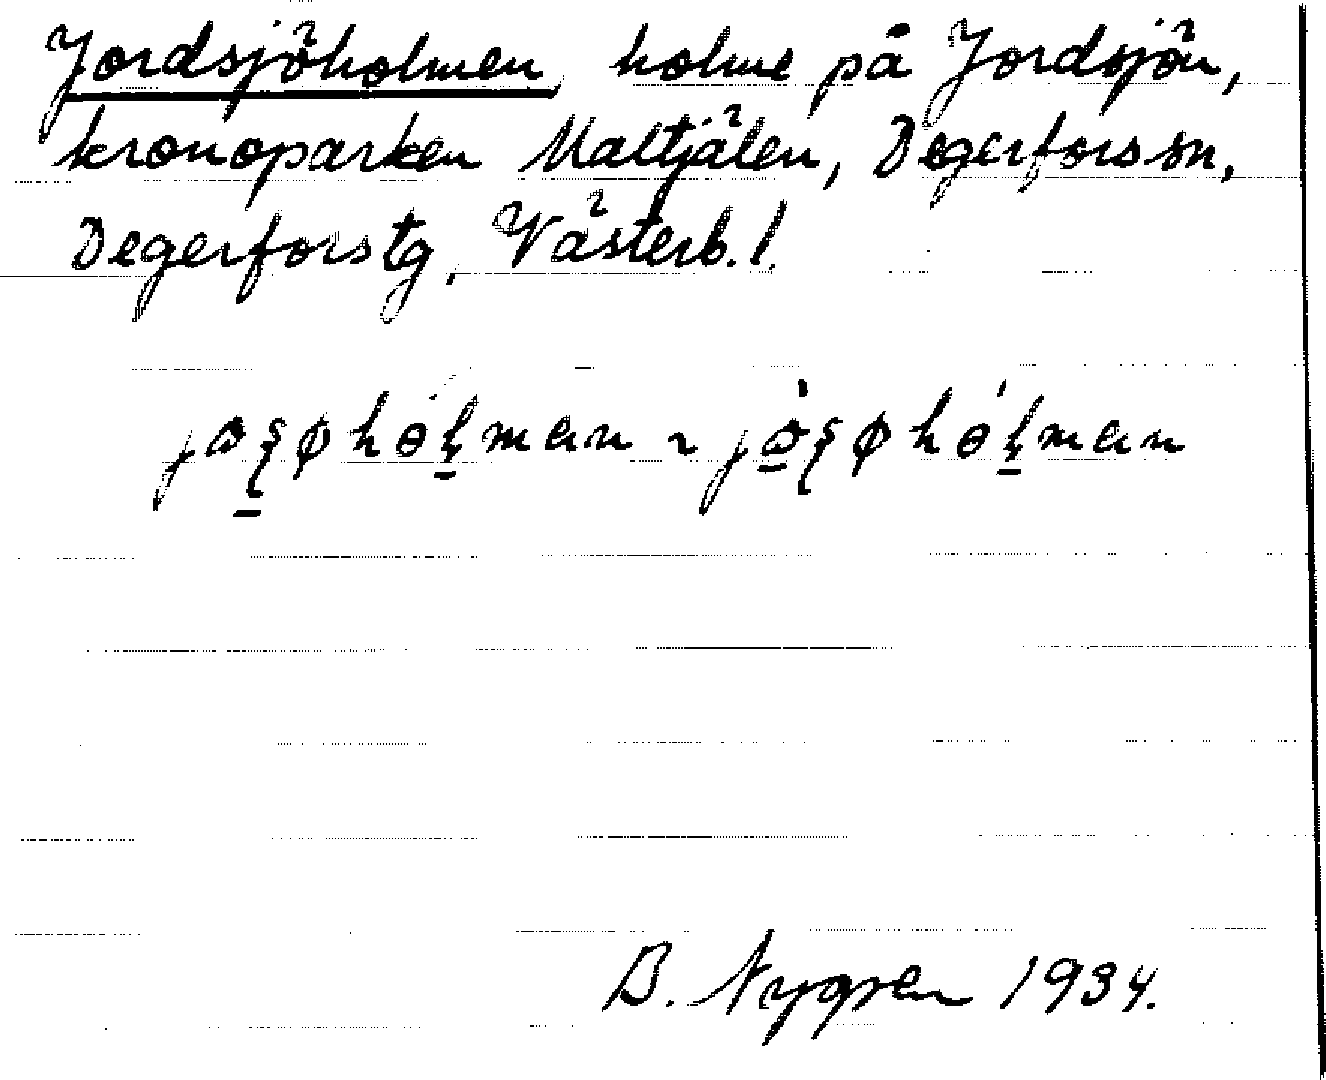 Jordsjöholmen, holme på Jordsjön,
kronoparken Maltjälen, Degerfors sn,
Degerfors tg, Västerb. l.
B. Nygren 1934.